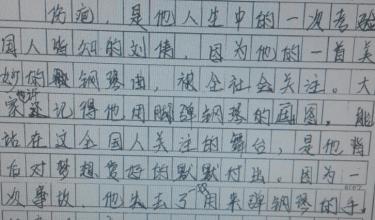 伤疤，是他人生中的一次考验
国人皆知的刘伟，因为他的一首美
妙的钢琴曲，被全社会关注。大
家还记得他用脚弹钢琴的画面。能
站在这全国人关注的舞台，是他背
后对梦想爱好的默默付出。因为一
次事故，他失去了一双用来弹钢琴的手。